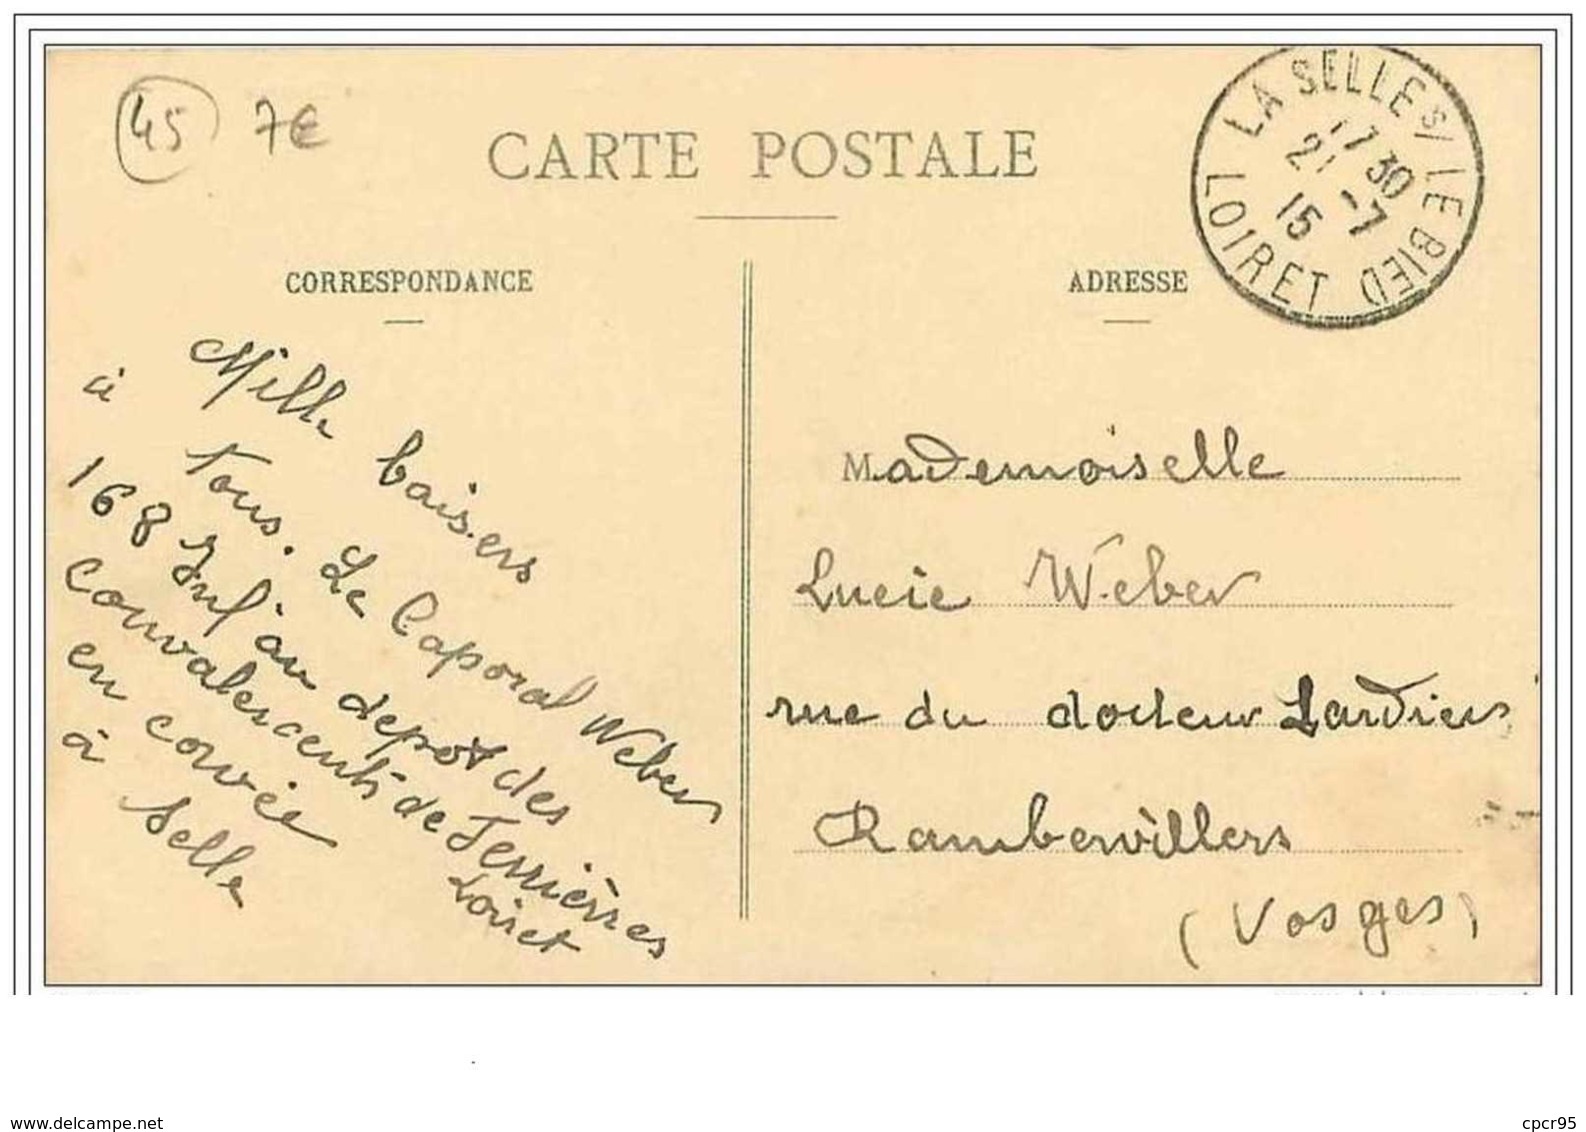 45 7€
CARTE POSTALE
LA SELLE S/ LE BIED
17 30
21 -7
15
LOIRET
CORRESPONDANCE
ADRESSE
Mille baisers
à tous. Le Caporal Weber
168 Inf au depot des
Convalescents de Ferrières
Loiret
en corvée
à Selle
Mademoiselle
Lucie Weber
rue du docteur Lardier
Rambervillers
(Vosges)
www.delcampe.net
cpcr95